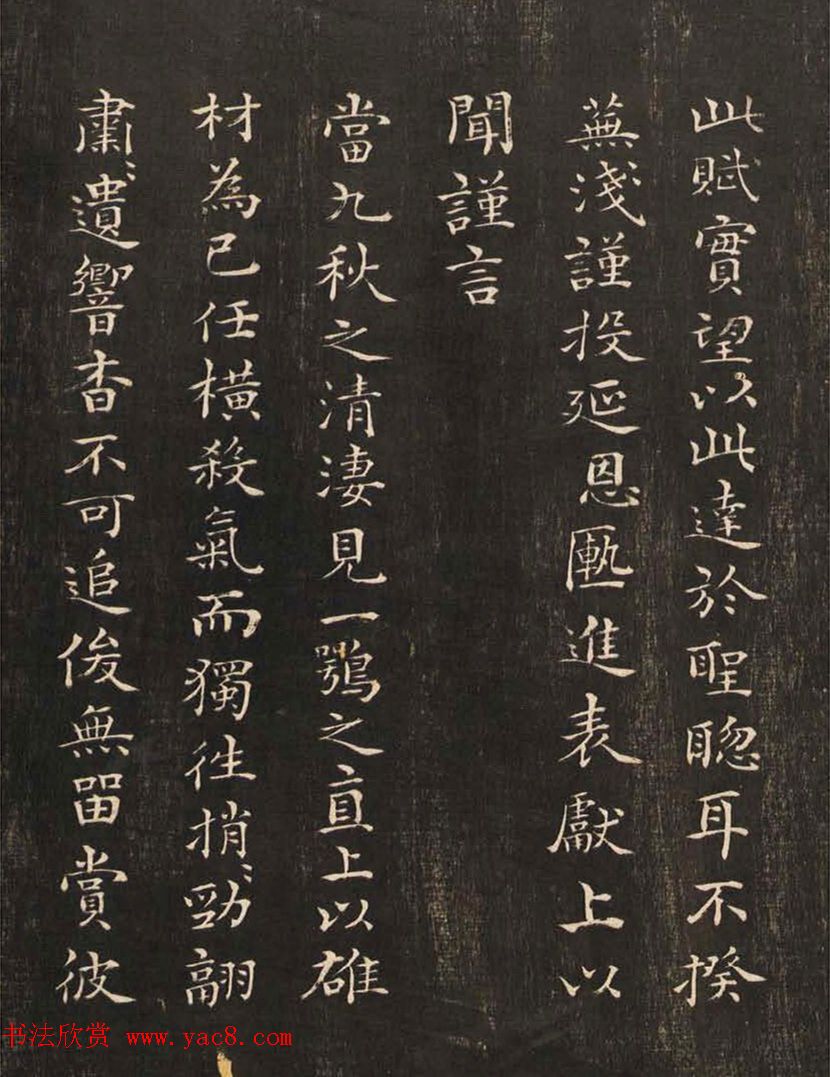 此賦實望以此達於聖聦耳不揆
蕪淺謹投延恩匭進表獻上以
聞謹言
當九秋之清淒見一鶚之直上以雄
材為己任橫殺氣而獨往捎〻勁翮
肅〻遺響杳不可追俊無留賞彼
书法欣赏 www.yac8.com